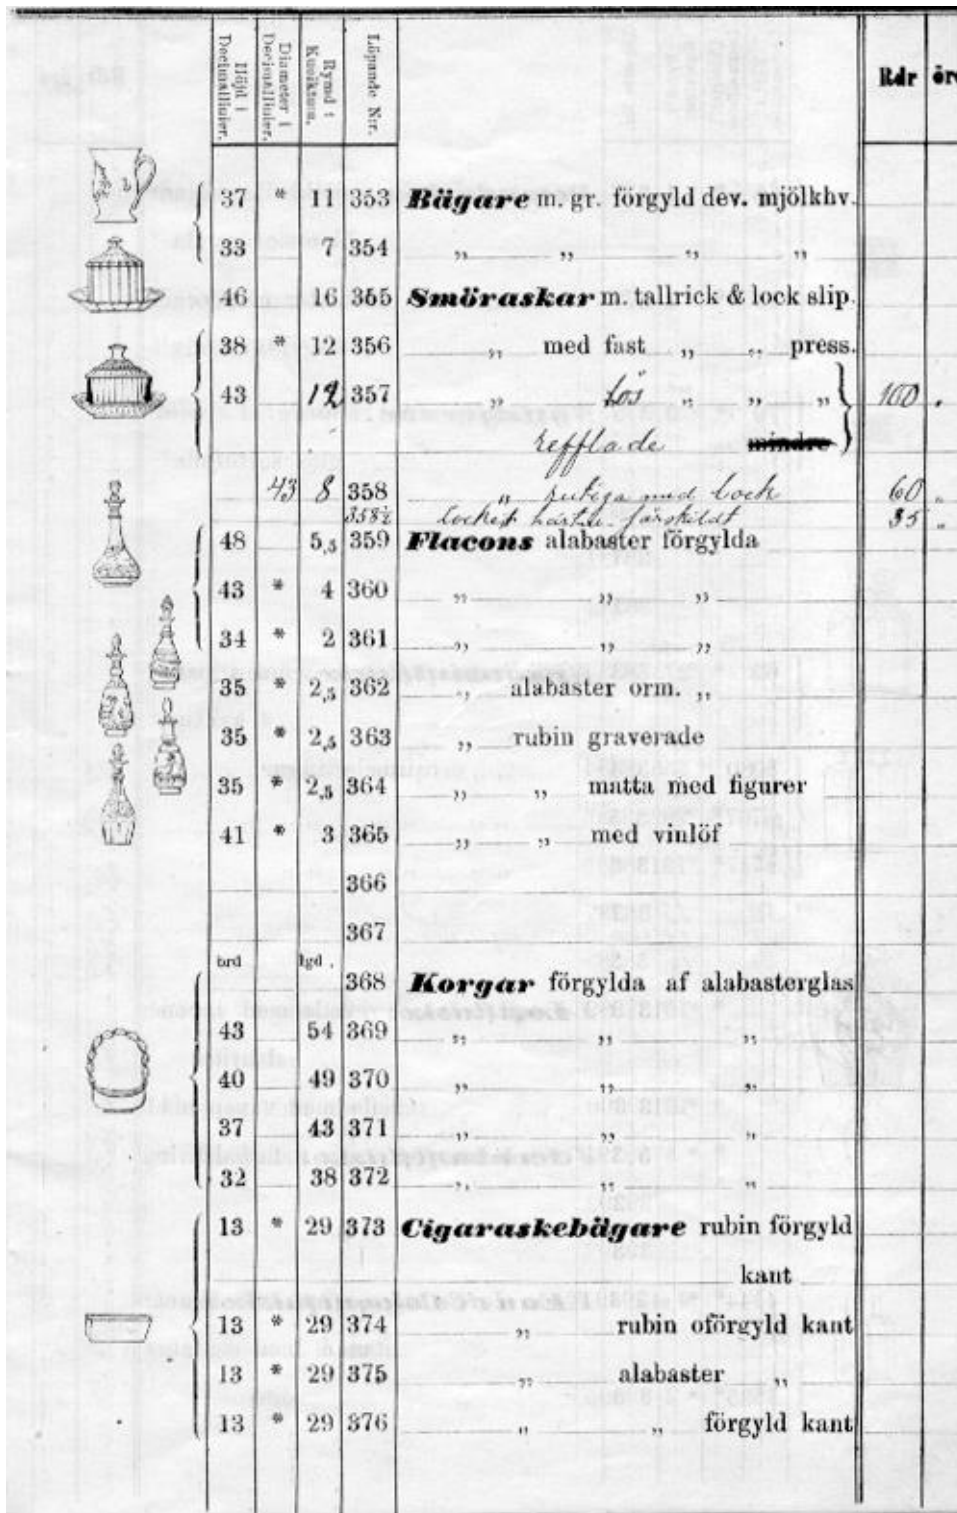 Höjd i Decimallinier. Diameter i Decimallinier. Rymd i Kubiktum. Löpande Nr. Rdr öre
37 * 11 353 Bägare m. gr. förgyld dev. mjölkhv.
33 7 354 „ „ „ „
46 16 355 Smöraskar m. tallrick & lock slip.
38 * 12 356 „ med fast „ „ press.
43 12 357 „ lös „ „ „ 100 „
refflade mindre
43 8 358 „ rutiga med lock 60 „
358½ locket särskildt 35 „
48 5,5 359 Flacons alabaster förgylda
43 * 4 360 „ „ „
34 * 2 361 „ „ „
35 * 2,5 362 „ alabaster orm. „
35 * 2,5 363 „ rubin graverade
35 * 2,5 364 „ „ matta med figurer
41 * 3 365 „ „ med vinlöf
366
367
brd lgd.
368 Korgar förgylda af alabasterglas
43 54 369 „ „ „
40 49 370 „ „ „
37 43 371 „ „ „
32 38 372 „ „ „
13 * 29 373 Cigaraskebägare rubin förgyld
kant
13 * 29 374 „ rubin oförgyld kant
13 * 29 375 „ alabaster „
13 * 29 376 „ „ förgyld kant